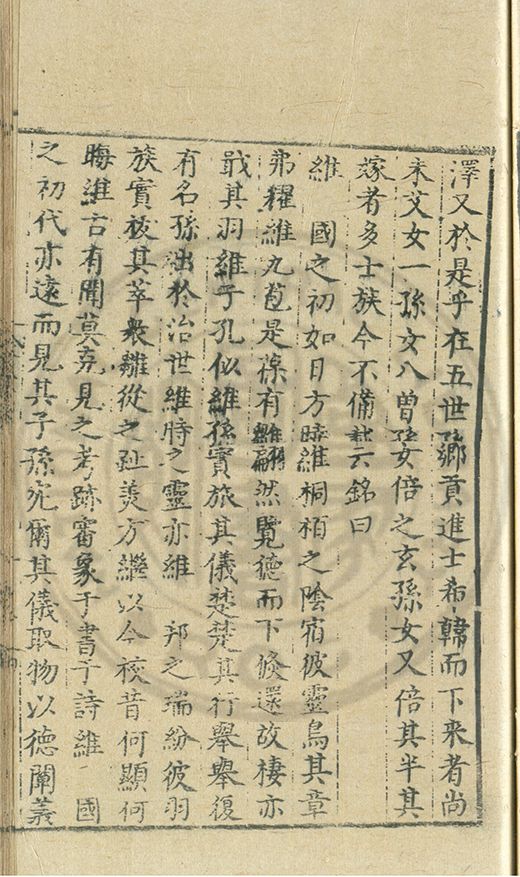 澤又於是乎在五世孫鄉貢進士希韓而下來者尚
未艾女一孫女八曾孫女倍之玄孫女又倍其半其
嫁者多士族今不備載云銘曰
維　國之初如日方暾維桐栢之陰宿彼靈鳥其章
弗糴維九苞是葆有翩然覽德而下倏還故棲亦
戢其羽維子孔似維孫實旅其儀楚楚其行舉舉復
有名孫出於治世維時之靈亦維　邦之瑞紛彼羽
族實祓其萃衆雛從之趾羙方繼以今視昔何顯何
晦維古有聞莫克見之考跡審象于書于詩維　國
之初代亦遠而見其子孫宛爾其儀取物以德闡義